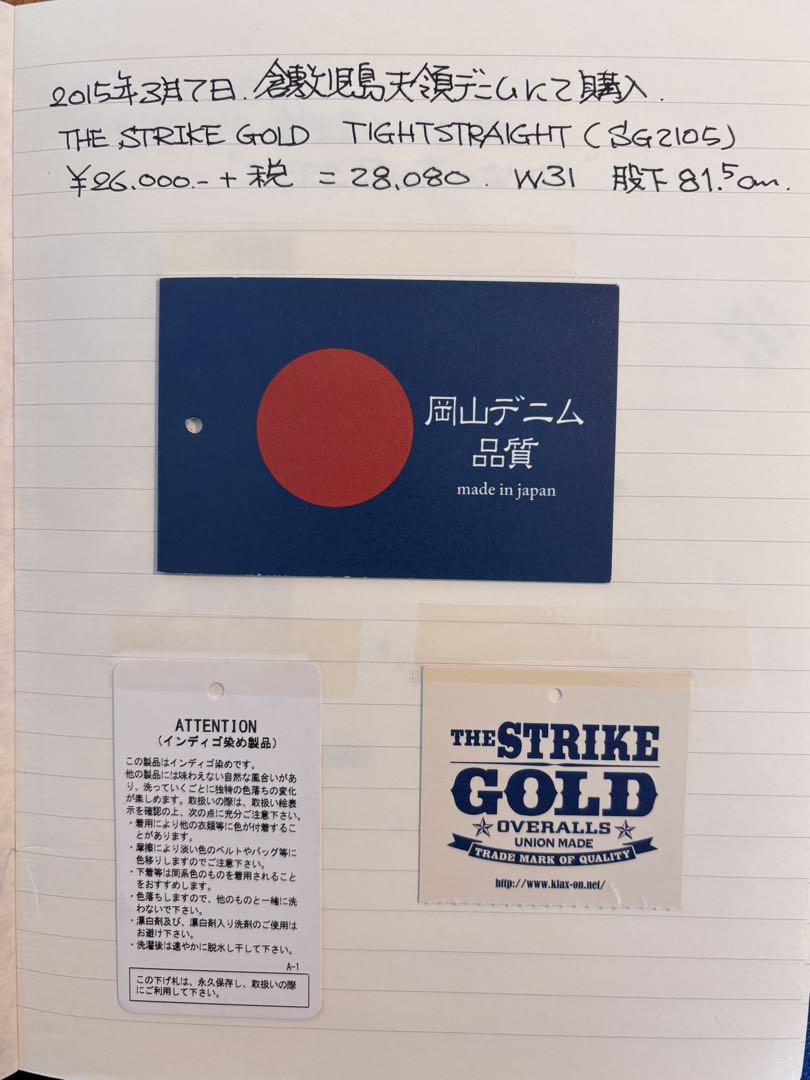 2015年3月7日. 倉敷児島天領デニムにて購入.
THE STRIKE GOLD TIGHTSTRAIGHT (SG2105)
¥26.000.- + 税 = 28,080. W31 股下 81.5cm.
岡山デニム
品質
made in japan
ATTENTION
(インディゴ染め製品)
この製品はインディゴ染めです。
他の製品には味わえない自然な風合いがあ
り、洗っていくごとに独特の色落ちの変化
が楽しめます。取扱いの際は、取扱い絵表
示を確認の上、次の点に充分ご注意下さい。
・着用により他の衣類等に色が付着するこ
とがあります。
・摩擦により淡い色のベルトやバッグ等に
色移りしますのでご注意下さい。
・下着等は同系色のものを着用されること
をおすすめします。
・色落ちしますので、他のものと一緒に洗
わないで下さい。
・漂白剤及び、漂白剤入り洗剤のご使用は
お避け下さい。
・洗濯後は速やかに脱水し干して下さい。
A-1
この下げ札は、永久保存し、取扱いの際
にご利用して下さい。
THE STRIKE
GOLD
OVERALLS
UNION MADE
TRADE MARK OF QUALITY
http://www.klax-on.net/